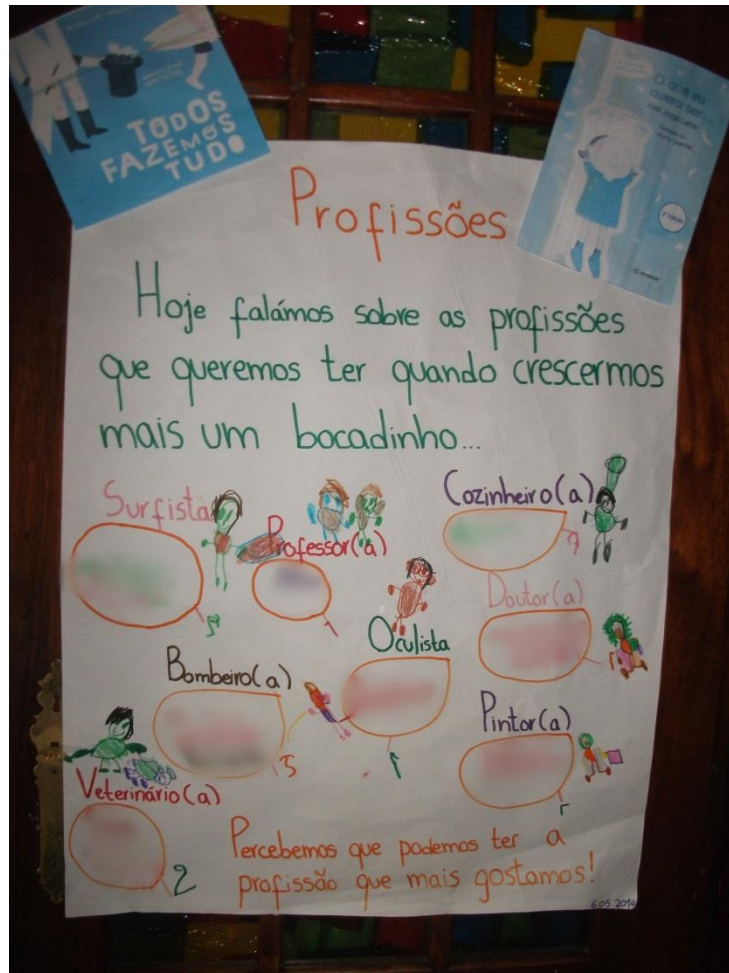 TODOS
FAZEMOS
TUDO
O que eu
quero ser...
José Jorge Letria
2ª Edição
Profissões
Hoje falámos sobre as profissões
que queremos ter quando crescermos
mais um bocadinho...
Surfista
Professor(a)
Cozinheiro(a)
Oculista
Doutor(a)
Bombeiro(a)
Pintor(a)
Veterinário(a)
2
Percebemos que podemos ter a
profissão que mais gostamos!
6.05.2014